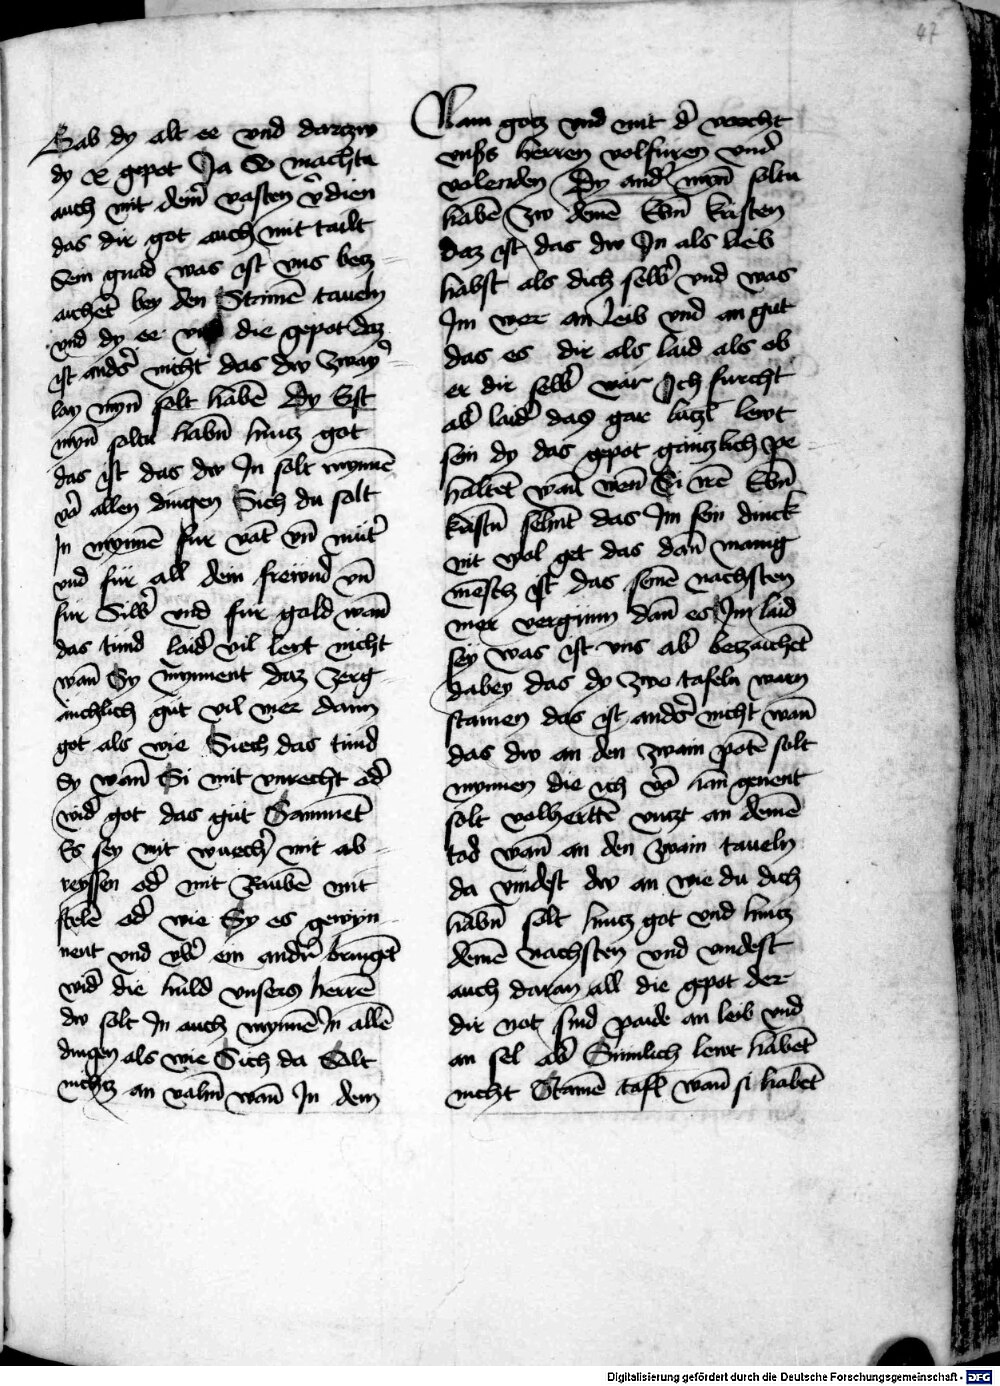 47
Gab dy alt ee vnd darczw
dy x gepot Ja So machtu
auch mit dem̄ vasten v̄dien
das dir got auch mit tailt
Sein gnad was ist vns betz-
aichet bey den Stainē taueln
vnd dy ee vnd die gepot daz
ist anders̄ nicht das dw zwayr̄-
lay myn̄ solt habē Dy Erst
myn̄ soltu habn̄ hincz got
das ist das dw In solt mynnē
vō allen dingen Sich du solt
In mynnē fur vat̄ vn̄ mūt̄
vnd für all dein frewnd̄ vn̄
für Silb̄ vnd fur gold wan̄
das tund laid̄ vil lewt nicht
wan̄ Sy mynnent daz zerg-
anchlich gūt vil mer dann
got als wie Siech das tund
Sy wan̄ Si mit vnrecht od̄
wid̄ got das gūt Sammet̄
Es sey mit wuech̄ mit ab-
reyssen od̄ mit Raubē mit
stelē od̄ wie Sy es gewyn-
nent vnd vb̄ ein andr̄ bringet̄
wid̄ die huld vnsers herrē
dw solt In auch mynnē In allē
dingen als wie Sich da Solt
nichtz an vahn̄ wan̄ In dem
Nam gotz vnd mit d̄ vorcht
vnsers herren volfuren vnd̄
volenden Dy and̄ myn̄ soltu
habē zw demē Ebn̄ kristen
daz ist das dw In als lieb
habst als dich selb̄ vnd was
Im wer an leib vnd an gūt
das es dir als laid als ob
er dir selb̄ wār Ich furcht
ab̄ laid̄ das gar lutzl lewt
sein dy das gepot gäntzlich pe-
haltet̄ wan̄ wen̄ Si irē Ebn̄
kristn̄ sehnt̄ das Im sein dinck
nit wol get das dan̄ manig
mēsch ist das seinē nachsten
mer verginn dan̄ es Im laid
sey was ist vns ab̄ betzaichet̄
dabey das dy zwo tafeln warn
stainen das ist anders̄ nicht wan̄
das dw an den zwain potē solt
mynnen die ich vō han genent
solt volhertten̄ vnczt an demē
tod wan̄ an den zwain taueln
da vindest dw an wie du dich
habn̄ solt hincz got vnd hincz
demē nachsten vnd vindest
auch daran all die gepot der
dir not sind paide an leib vnd
an sel ab̄ Sūmlich lewt habet̄
nicht Stainē tafl wan̄ si habet̄
Digitalisierung gefördert durch die Deutsche Forschungsgemeinschaft - DFG